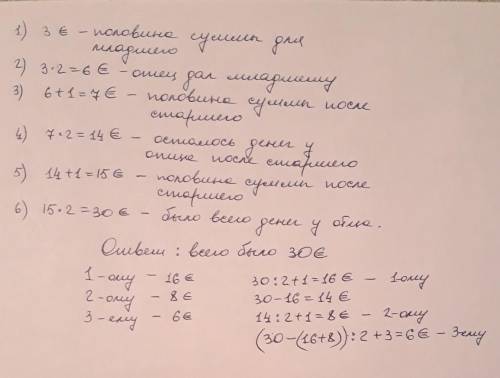 1) 3 € – половина суммы для
младшего
2) 3·2=6 € – отец дал младшему
3) 6+1=7€ – половина суммы после
старшего
4) 7·2=14€ – осталось денег у
отца после старшего
5) 14+1=15€ – половина суммы после
старшего
6) 15·2=30€ – было всего денег у отца.
Ответ: всего было 30€
1-ому – 16€
2-ому – 8€
3-ему – 6€
30:2+1=16€ – 1-ому
30-16=14€
14:2+1=8€ – 2-ому
(30-(16+8)):2+3=6€ – 3-ему